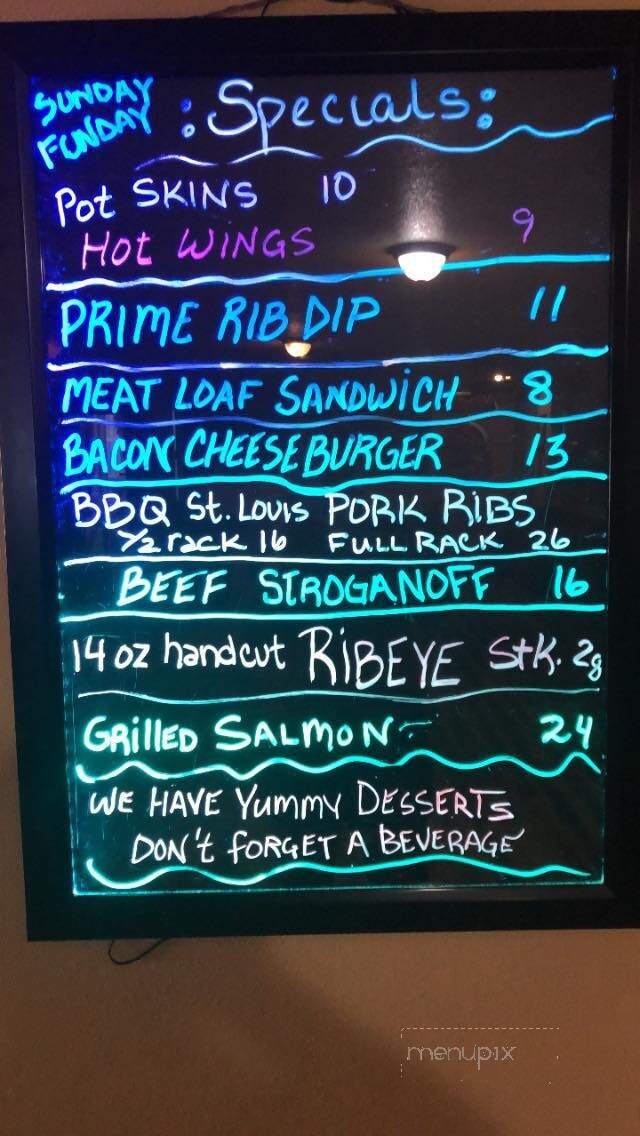 SUNDAY FUNDAY : Specials:
Pot SKINS 10
Hot WINGS 9
PRIME RIB DIP 11
MEAT LOAF SANDWiCH 8
BACON CHEESEBURGER 13
BBQ St. Louis PORK RiBS
1/2 rack 16 FULL RACK 26
BEEF STROGANOFF 16
14 oz handcut RiBEYE StK. 28
GRillED SALMON - 24
WE HAVE Yummy DESSERTS
DON't FORGET A BEVERAGE
menupix